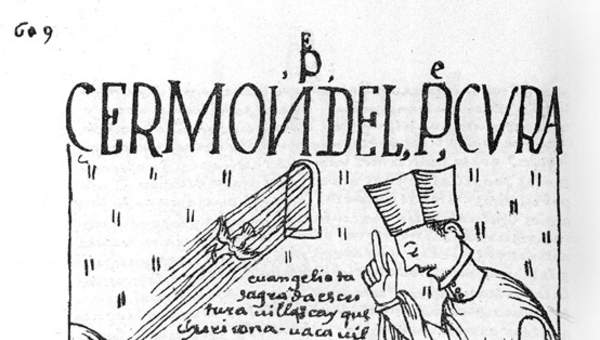 609
E
,P,
CERMON DEL,Pᵉ,CVRA
euangeliota
sagrada escri
tura uillascayque
churicona-uaca uil